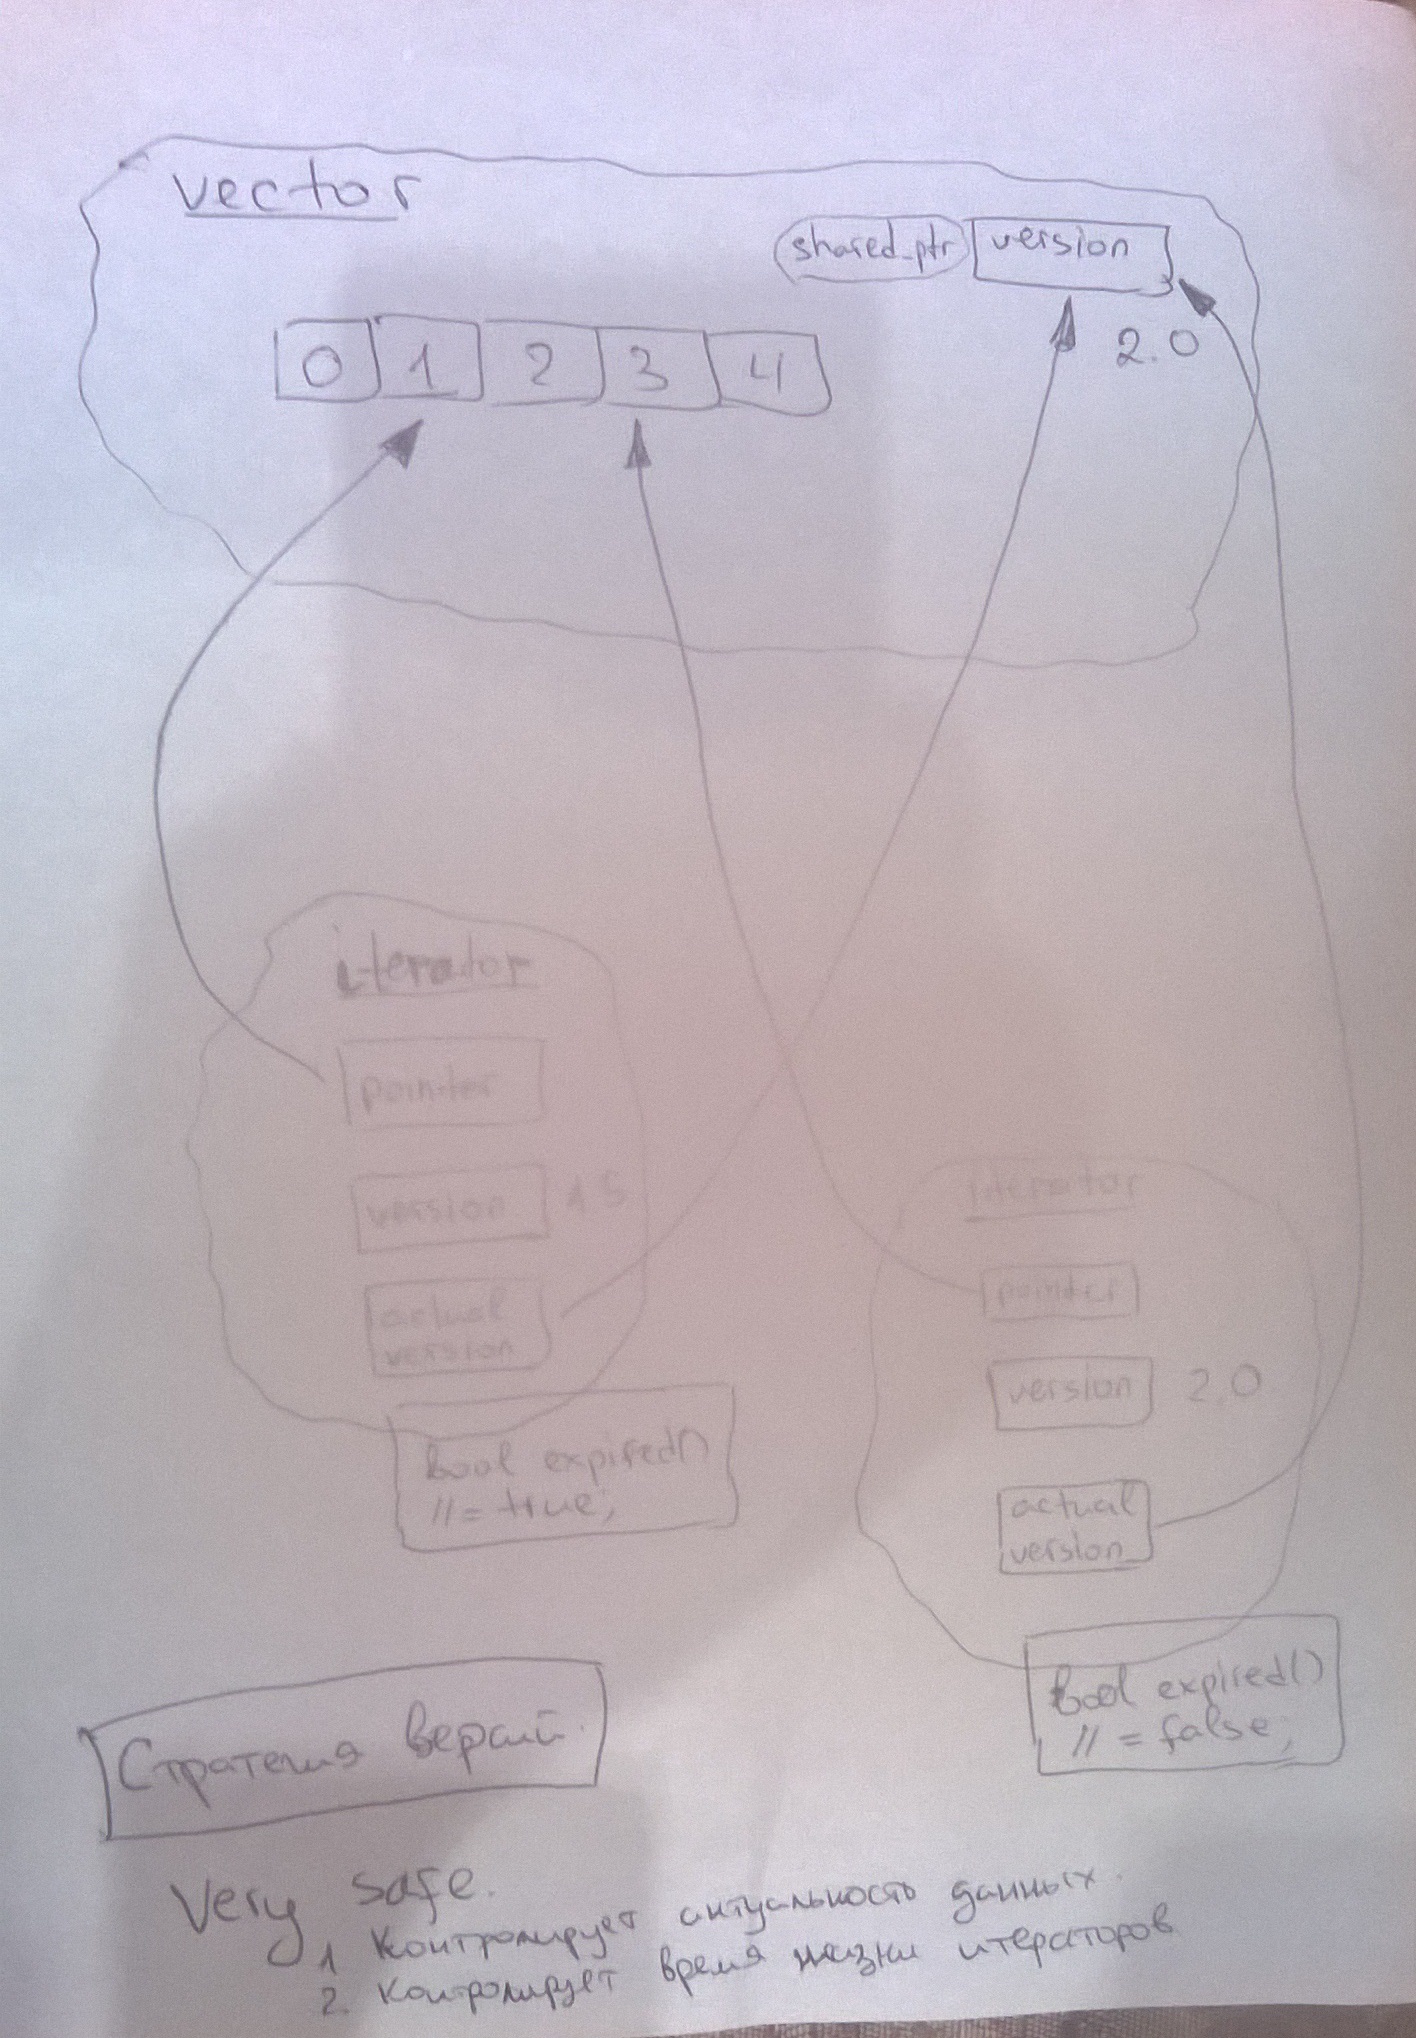 vector
shared_ptr version
2.0
0 1 2 3 4
iterator
pointer
version 1.5
actual
version
bool expired()
// = true;
iterator
pointer
version 2.0
actual
version
bool expired()
// = false;
Стратегия версий.
Very safe.
1 Контролирует актуальность данных.
2. Контролирует время жизни итераторов